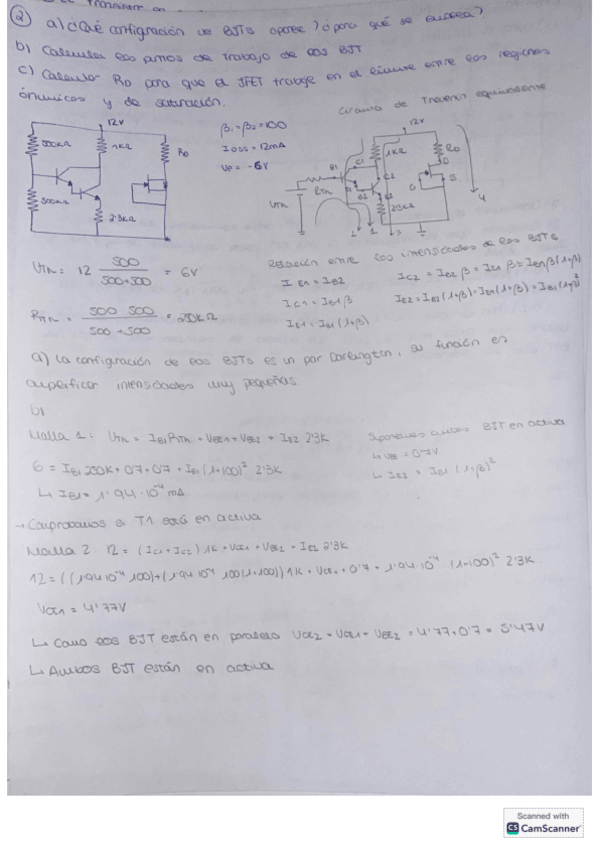 ② a) ¿Qué configuración de BJTs aparece? ¿para qué se emplea?
b) Calcular los puntos de trabajo de los BJT
c) Calcular RD para que el JFET trabaje en el límite entre las regiones
óhmicas y de saturación.
Circuito de Thevenin equivalente
12V
500kΩ
1kΩ
RD
500kΩ
2'3kΩ
β1=β2=100
IDSS=12mA
VP=-6V
12V
1kΩ
RD
B1
C1
C2
RTh
VTh
2'3kΩ
D
G
S
1
2
3
4
VTh = 12 500/(500+500) = 6V
RTh = 500·500/(500+500) = 250kΩ
Relación entre las intensidades de los BJTs
IE1=IB2
IC1=IB1β
IE1=IB1(1+β)
IC2=IB2β=IE1β=IB1β(1+β)
IE2=IB2(1+β)=IE1(1+β)=IB1(1+β)²
a) La configuración de los BJTs es un par Darlington, su función es
amplificar intensidades muy pequeñas
b)
Malla 1: VTh = IB1RTh + VBE1 + VBE2 + IE2 2'3K
Suponemos ambos BJT en activa
↳ VBE=0'7V
↳ IE2 = IB1(1+β)²
6 = IB1 250K + 0'7 + 0'7 + IB1(1+100)² 2'3K
↳ IB1 = 1'94·10⁻⁴ mA
→ Comprobamos si T1 está en activa
Malla 2 12 = (IC1+IC2)1K + VCE1 + VBE2 + IE2 2'3K
12 = ((1'94 10⁻⁴ 100)+(1'94 10⁻⁴ 100(1+100))1K + VCE1 + 0'7 + 1'94·10⁻⁴ (1+100)² 2'3K
VCE1 = 4'77V
↳ Como los BJT están en paralelo VCE2 = VCE1 + VBE2 = 4'77+0'7 = 5'47V
↳ Ambos BJT están en activa
Scanned with
CS CamScanner